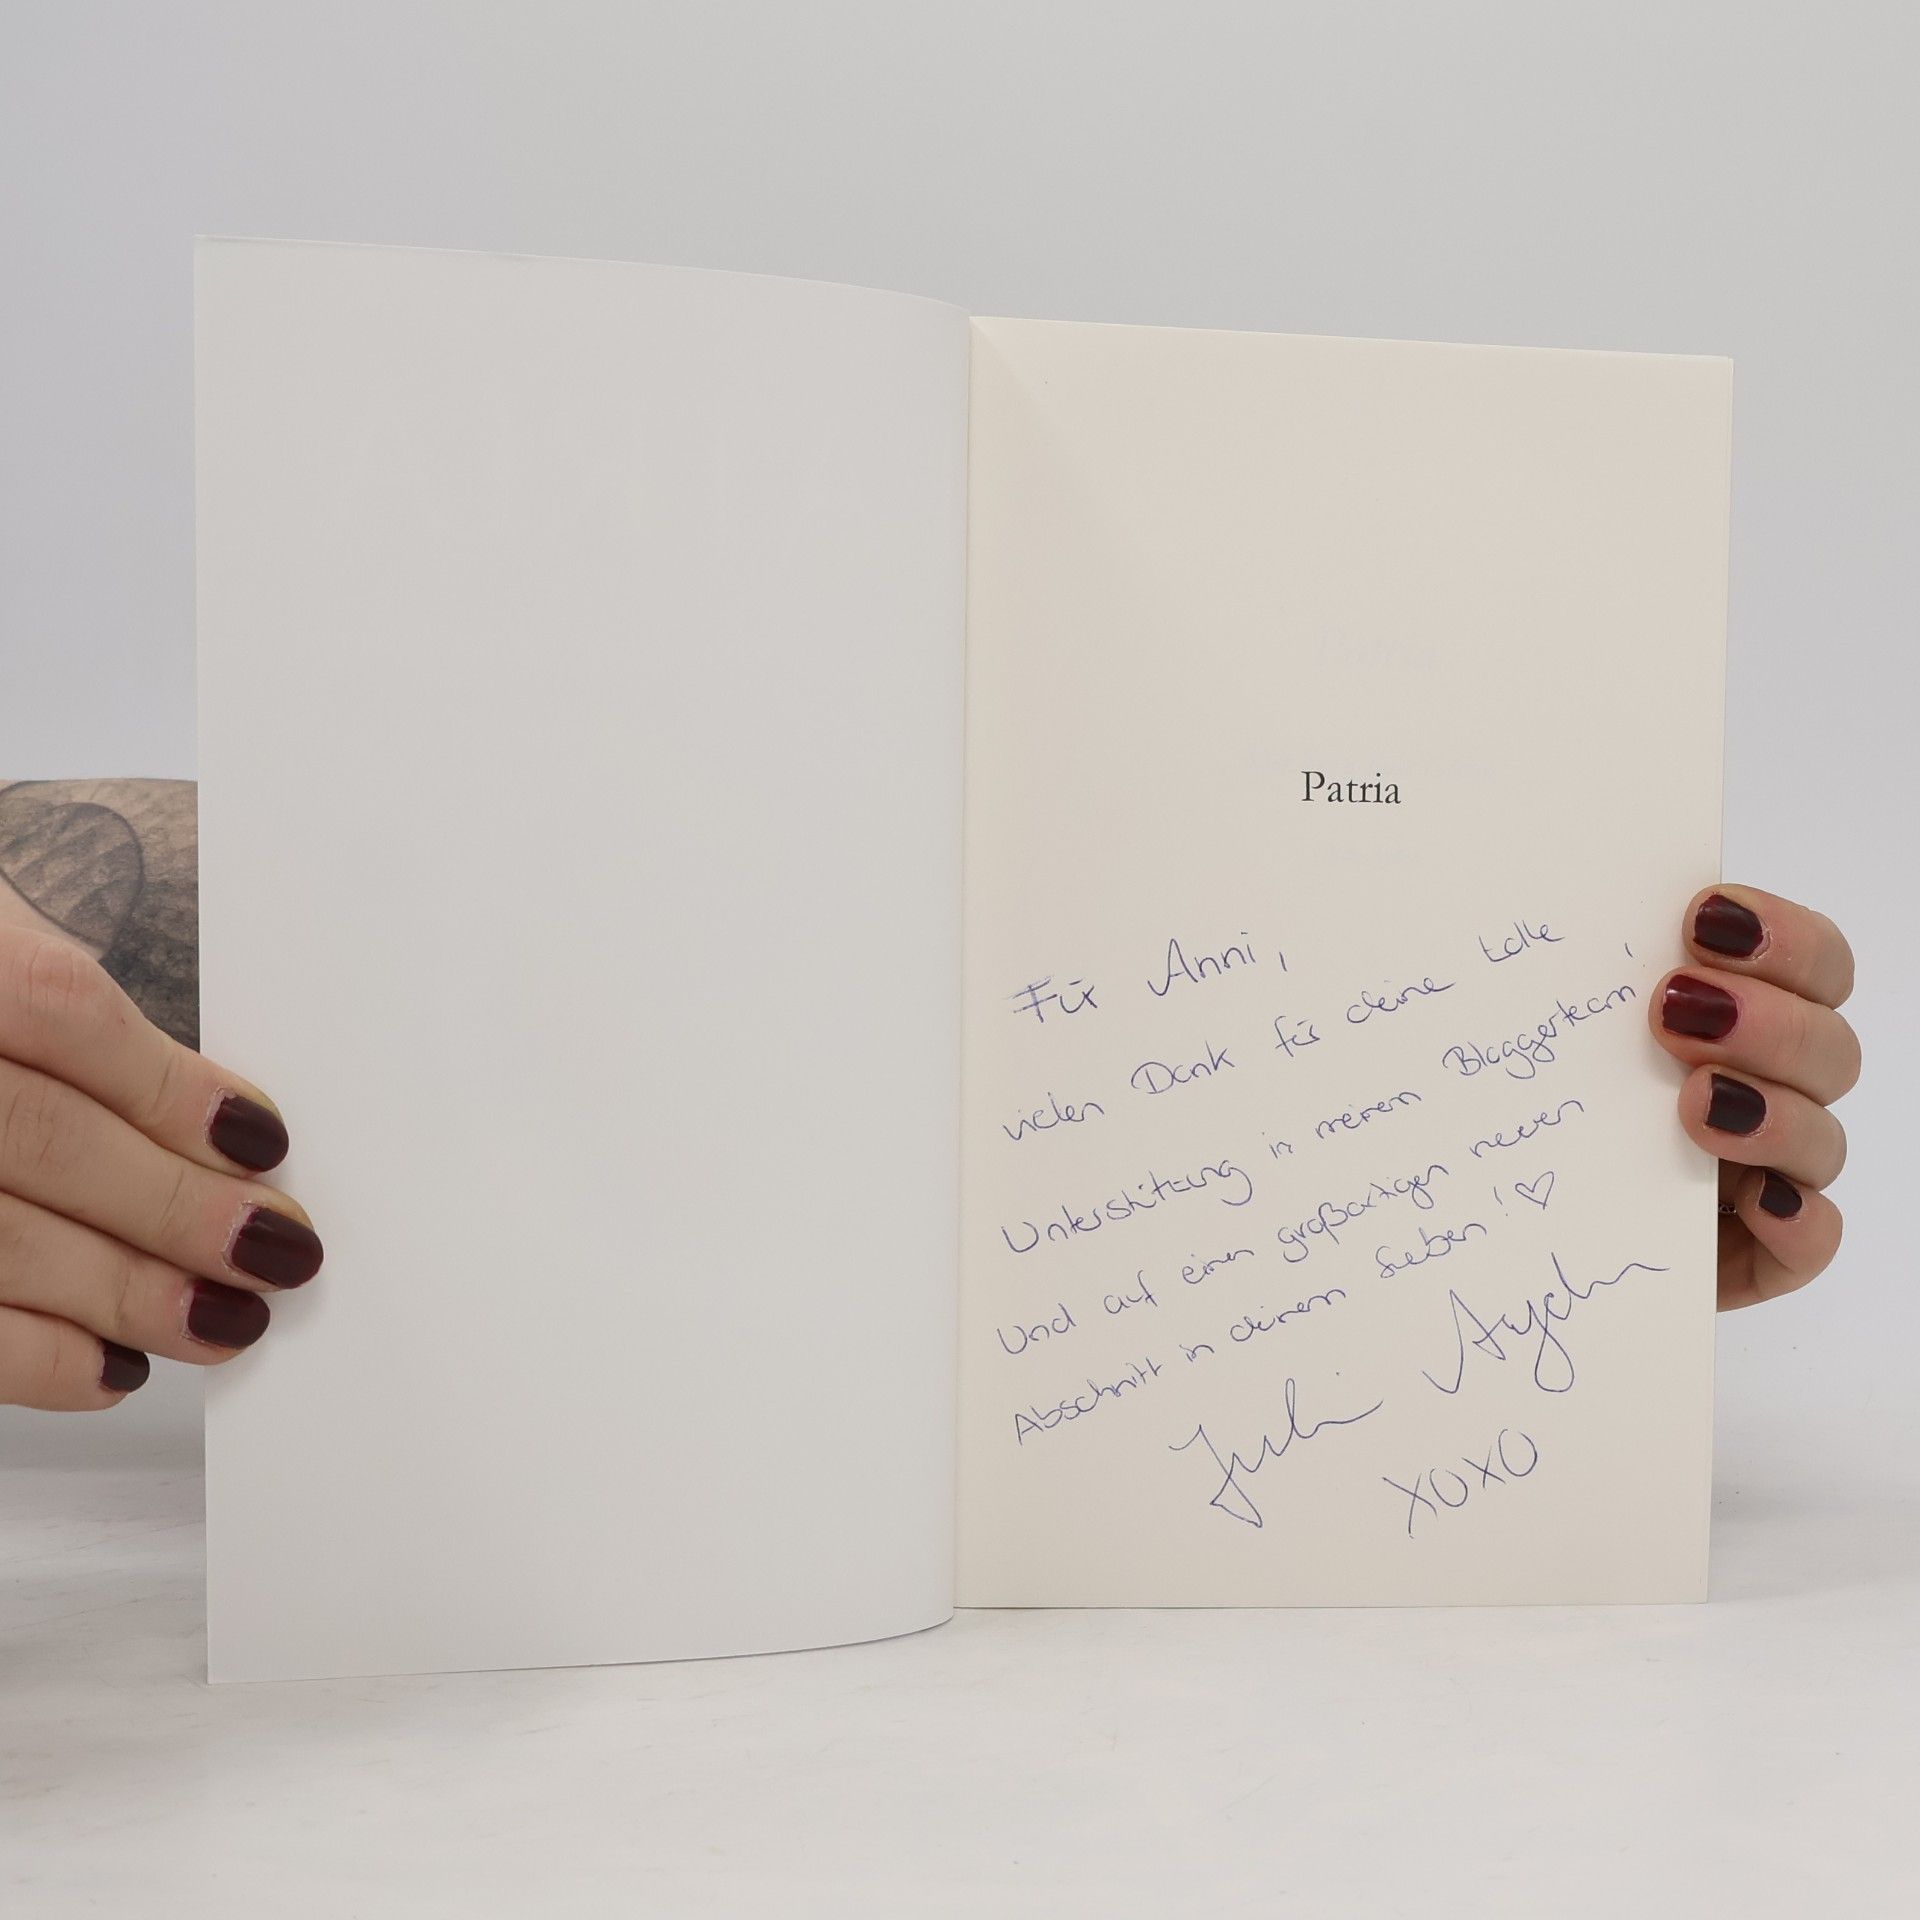 Patria
Für Anni,
vielen Dank für deine tolle
Unterstützung in meinem Bloggerteam!
Und auf einen großartigen neuen
Abschnitt in deinem Leben! ♡
XOXO